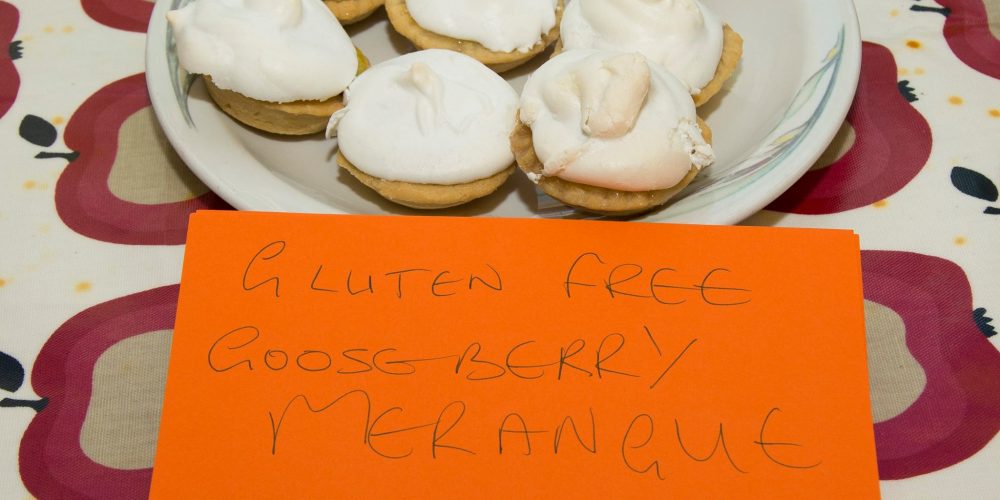 GLUTEN FREE
GOOSEBERRY
MERANGUE